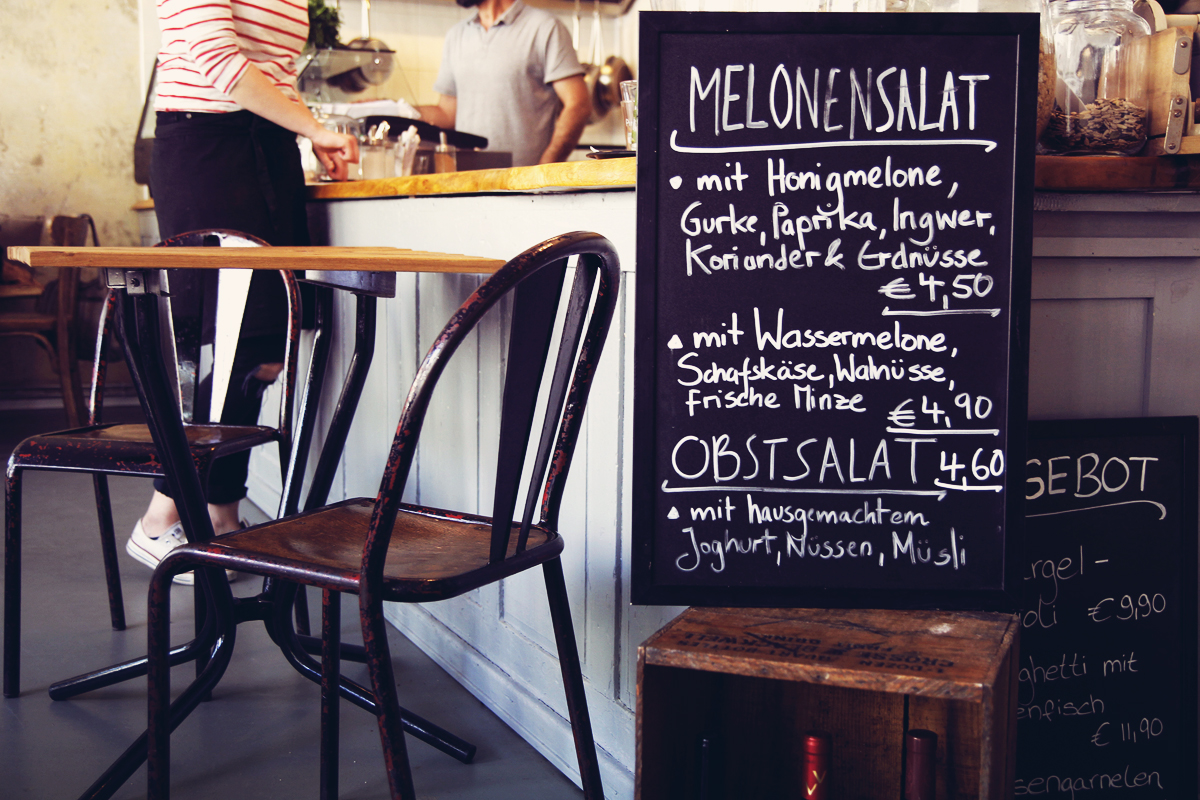 MELONENSALAT
• mit Honigmelone,
Gurke, Paprika, Ingwer,
Koriander & Erdnüsse
€ 4,50
▲ mit Wassermelone,
Schafskäse, Walnüsse,
frische Minze € 4,90
OBSTSALAT 4,60
▲ mit hausgemachtem
Joghurt, Nüssen, Müsli
GEBOT
rgel -
oli € 9,90
ghetti mit
enfisch
€ 11,90
sengarnelen